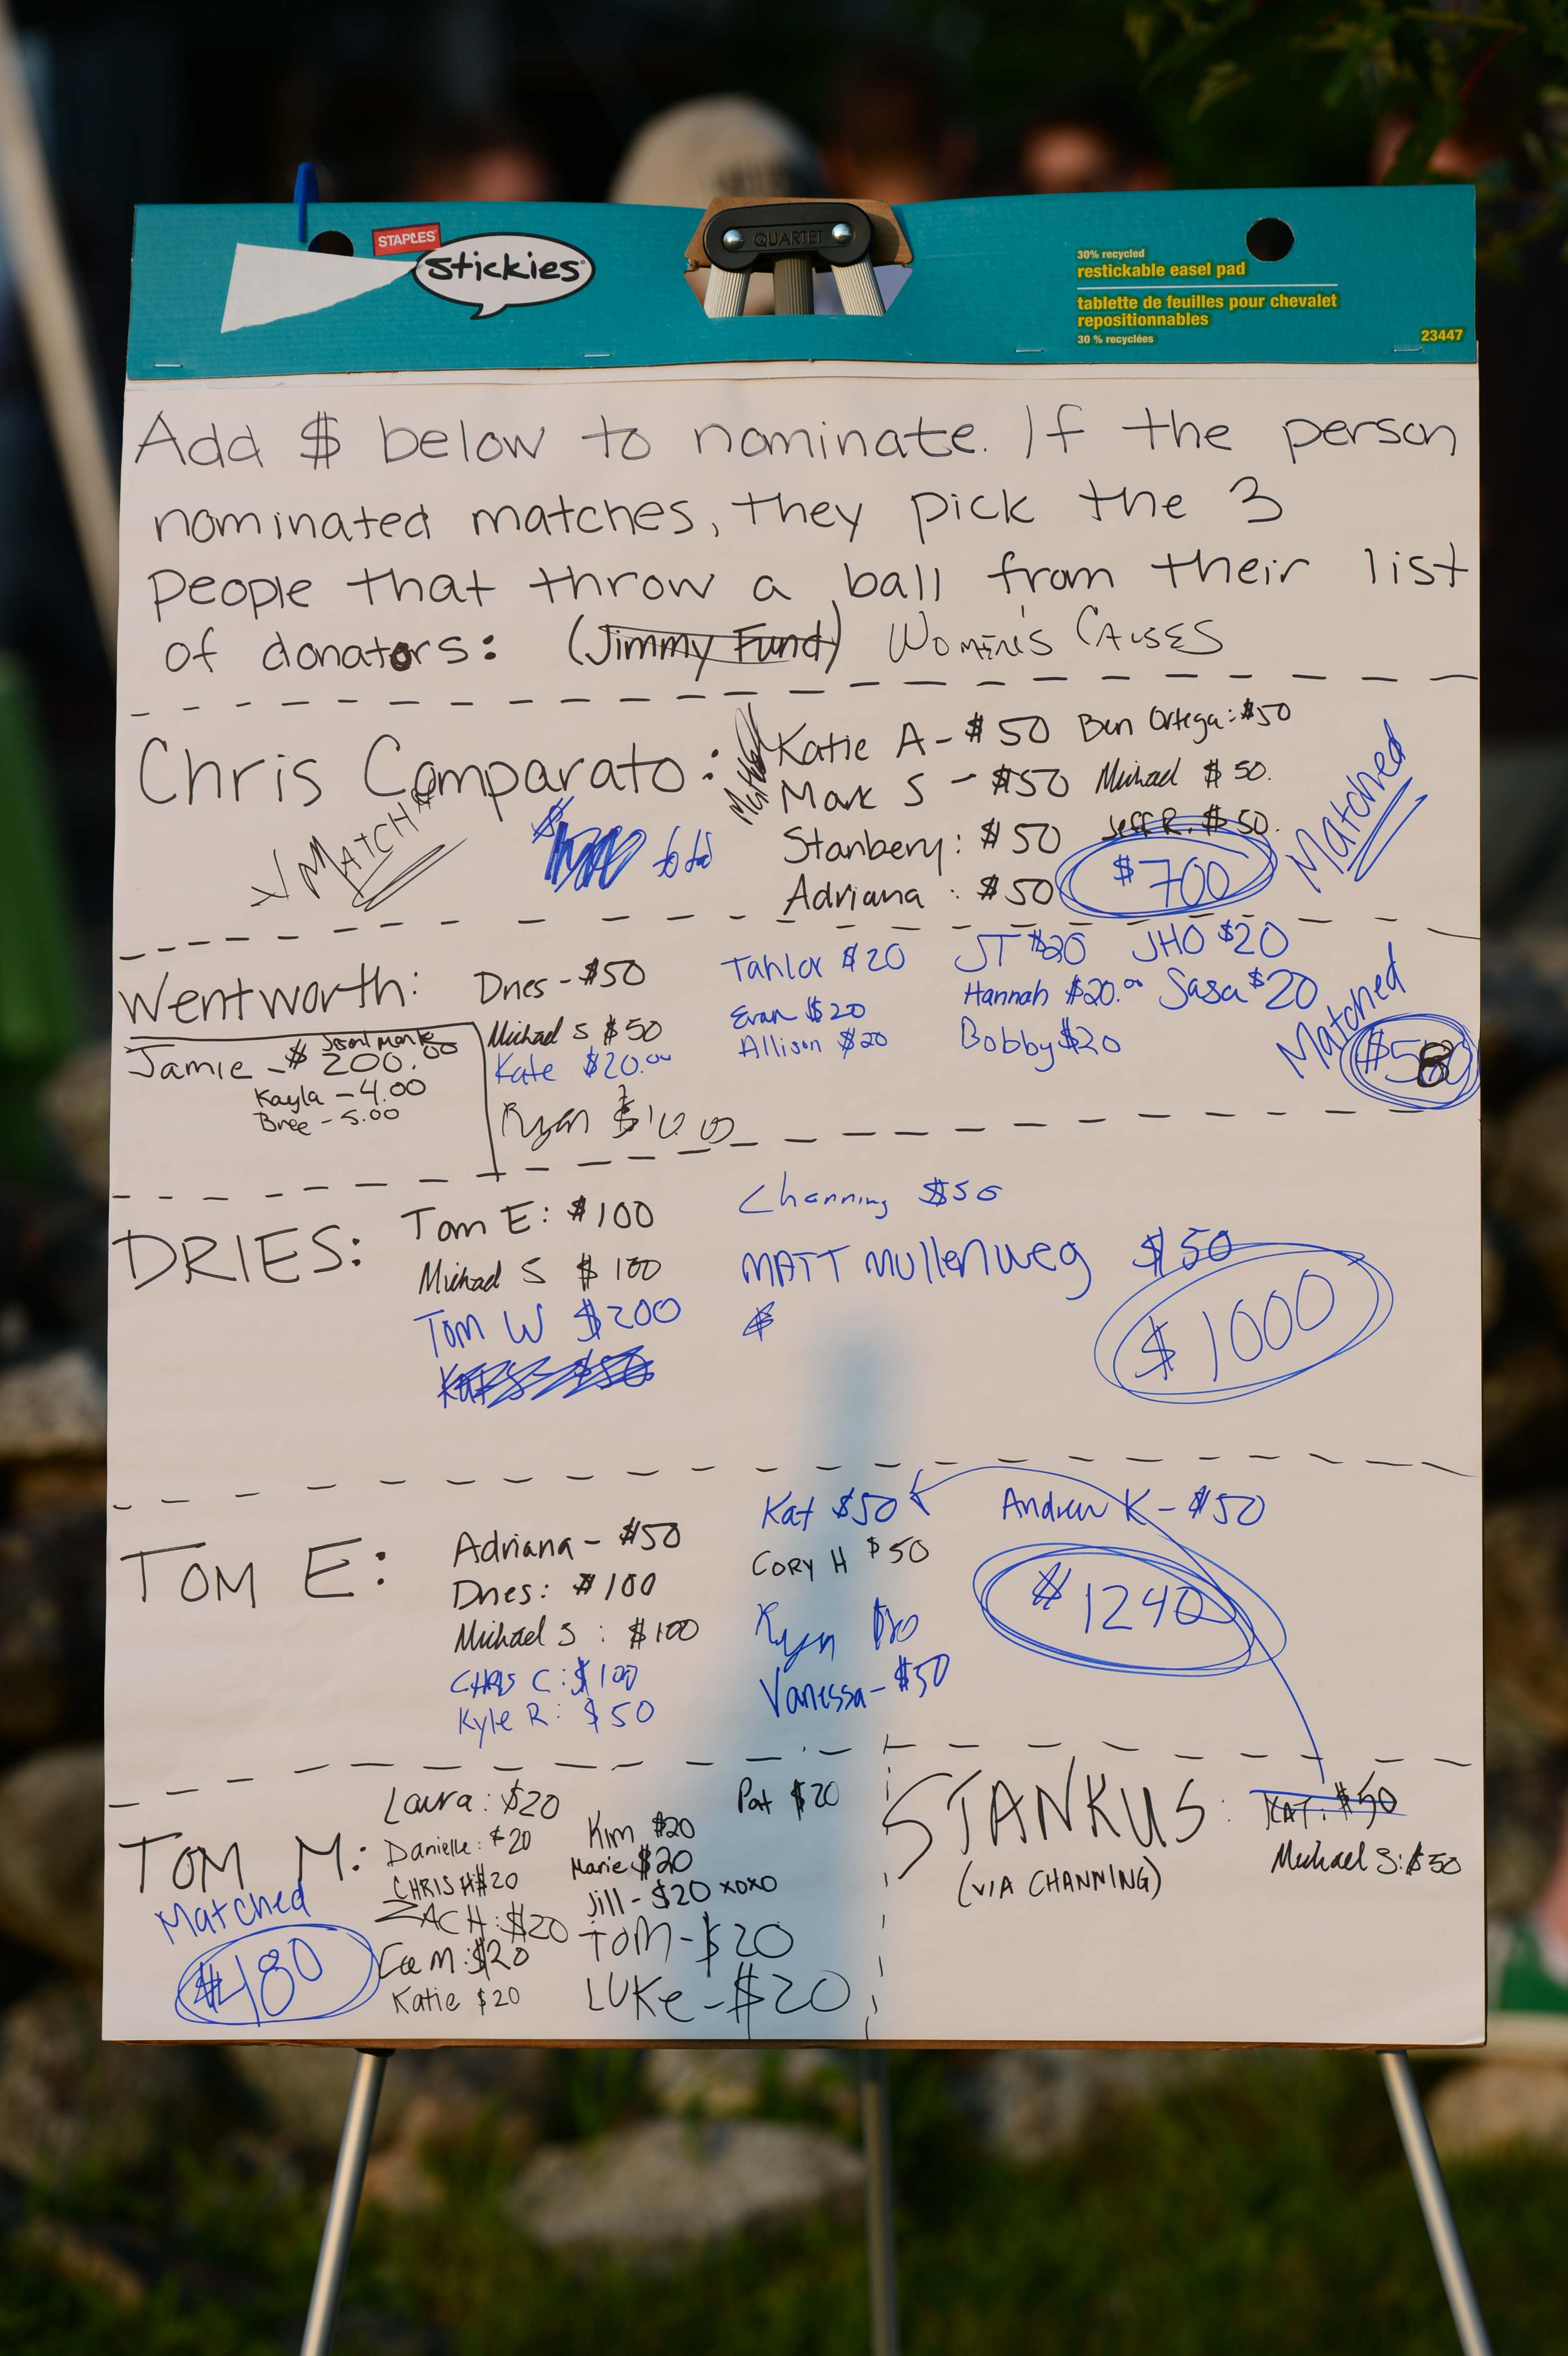 STAPLES
stickies
QUARTET
30% recycled
restickable easel pad
tablette de feuilles pour chevalet
repositionnables
30 % recyclées
23447
Add $ below to nominate. If the person
nominated matches, they pick the 3
people that throw a ball from their list
of donators: (Jimmy Fund) Women's Causes
Chris Comparato:
MATCH
Katie A - $50
Ben Ortega: $50
Mark S - $50
Michael $50.
Stanbery: $50
Jeff R. $50.
Adriana: $50
$700
Matched
Wentworth:
Jamie - $200.00
Kayla - 4.00
Bree - 5.00
Dries - $50
Michael S $50
Kate $20.00
Ryan $10.00
$20
Evan $20
Allison $20
JT $20
JHO $20
Hannah $20.00
Sasa $20
Bobby $20
Matched
DRIES:
Tom E: $100
Michael S $100
Tom W $200
Channing $50
MATT Mullenweg $50
$
$1000
TOM E:
Adriana - $50
Dries: $100
Michael S: $100
CHRIS C: $100
Kyle R: $50
Kat $50
CORY H $50
Ryan
Vanessa - $50
Andrew K - $50
$1240
TOM M:
Matched
$480
Laura: $20
Danielle: $20
CHRIS H $20
ZACH: $20
$20
Katie $20
Kim $20
Marie $20
Jill - $20 xoxo
TOM - $20
LUKe - $20
Pat $20
STANKUS:
(VIA CHANNING)
KAT: $50
Michael S: $50